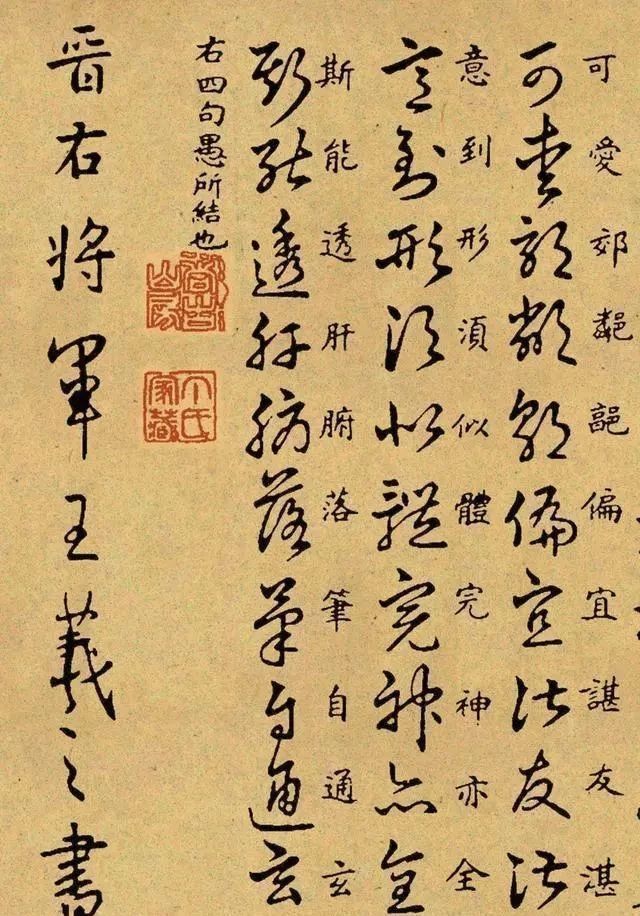 可愛郊偏宜諶友湛
可愛郊偏宜諶友湛
意到形須似體完神亦全
意到形須似體完神亦全
斯能透肝腑落筆自通玄
斯能透肝腑落筆自通玄
右四句愚所結也
卞氏家藏
晉右將軍王羲之書